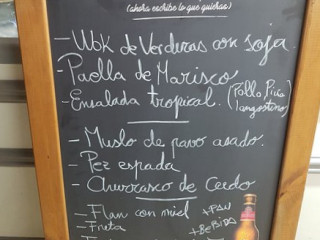 (ahora escribe lo que quieras)
- Wok de Verduras con soja.
- Paella de Marisco
- Ensalada tropical. (Pollo, Piña
langostino)
- Muslo de pavo asado.
- Pez espada
- Churrasco de Cerdo
- Flan con miel
+ PAN
- Fruta
+ BEBIDA